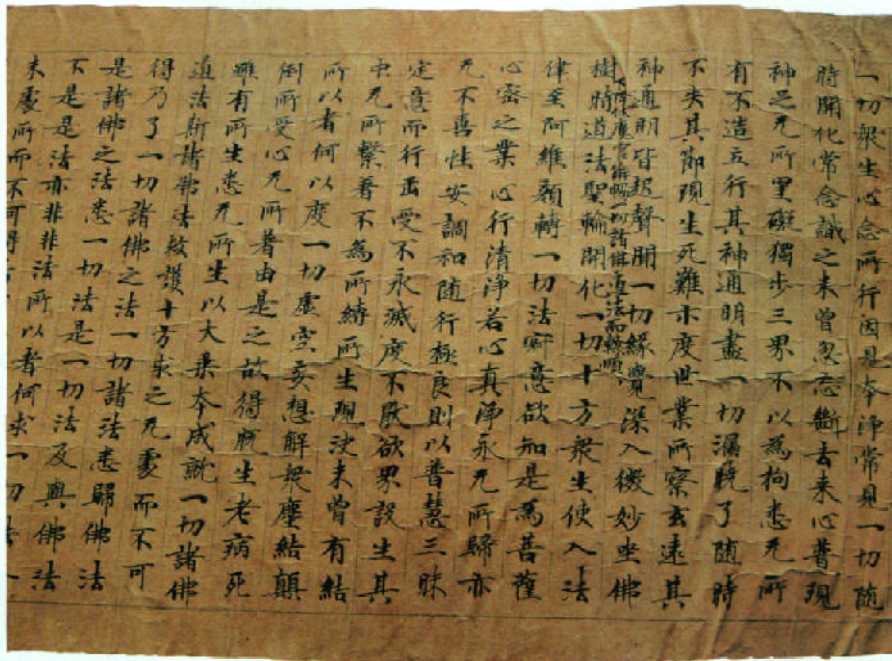 一切衆生心念所行因是本淨常見一切随
時開化常念識之未曾忽忘斷去来心普現
神足无所罣礙獨步三界不以為拘悉无所
有不造立行其神通明盡一切漏曉了随時
不失其節現生死難示度世業所察玄遠其
神通明皆超聲聞一切緣覺深入微妙坐佛
樹時道法聖輪開化一切十方衆生使入法
律至阿維顏轉一切法輙意欲知是為菩薩
心密之業心行清淨若心真淨永无所歸亦
无不喜性安調和随行極良則以普慧三昧
定意而行正受不永滅度不猒欲界設生其
中无所繫著不為所縛所生現決未曾有結
所以者何以度一切虛空妄想解衆塵結顛
倒所受心无所著由是之故得脫生老病死
雖有所生悉无所生以大乗本成就一切諸佛
道法斯諸佛法救護十方求之无處而不可
得乃了一切諸佛之法一切諸法悉歸佛法
是諸佛之法悉一切法是一切法及與佛法
不是是法亦非非法所以者何求一切法
未處所而不可得